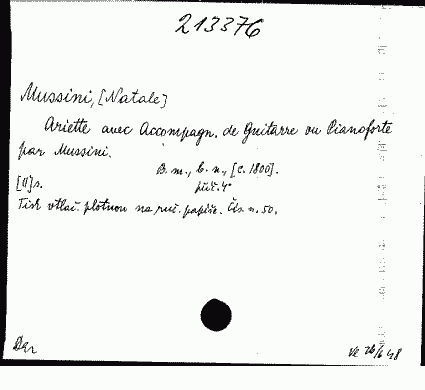 213376
Mussini, [Natale]
Ariette avec Accompagn. de Guitarre ou Pianoforte
par Mussini.
B. m., b. n., [c. 1800].
[11]s.
příč. 4°
Tisk vtlač. plotnou na ruč. papíře. Čís. n. 50.
Dar
26/6 48